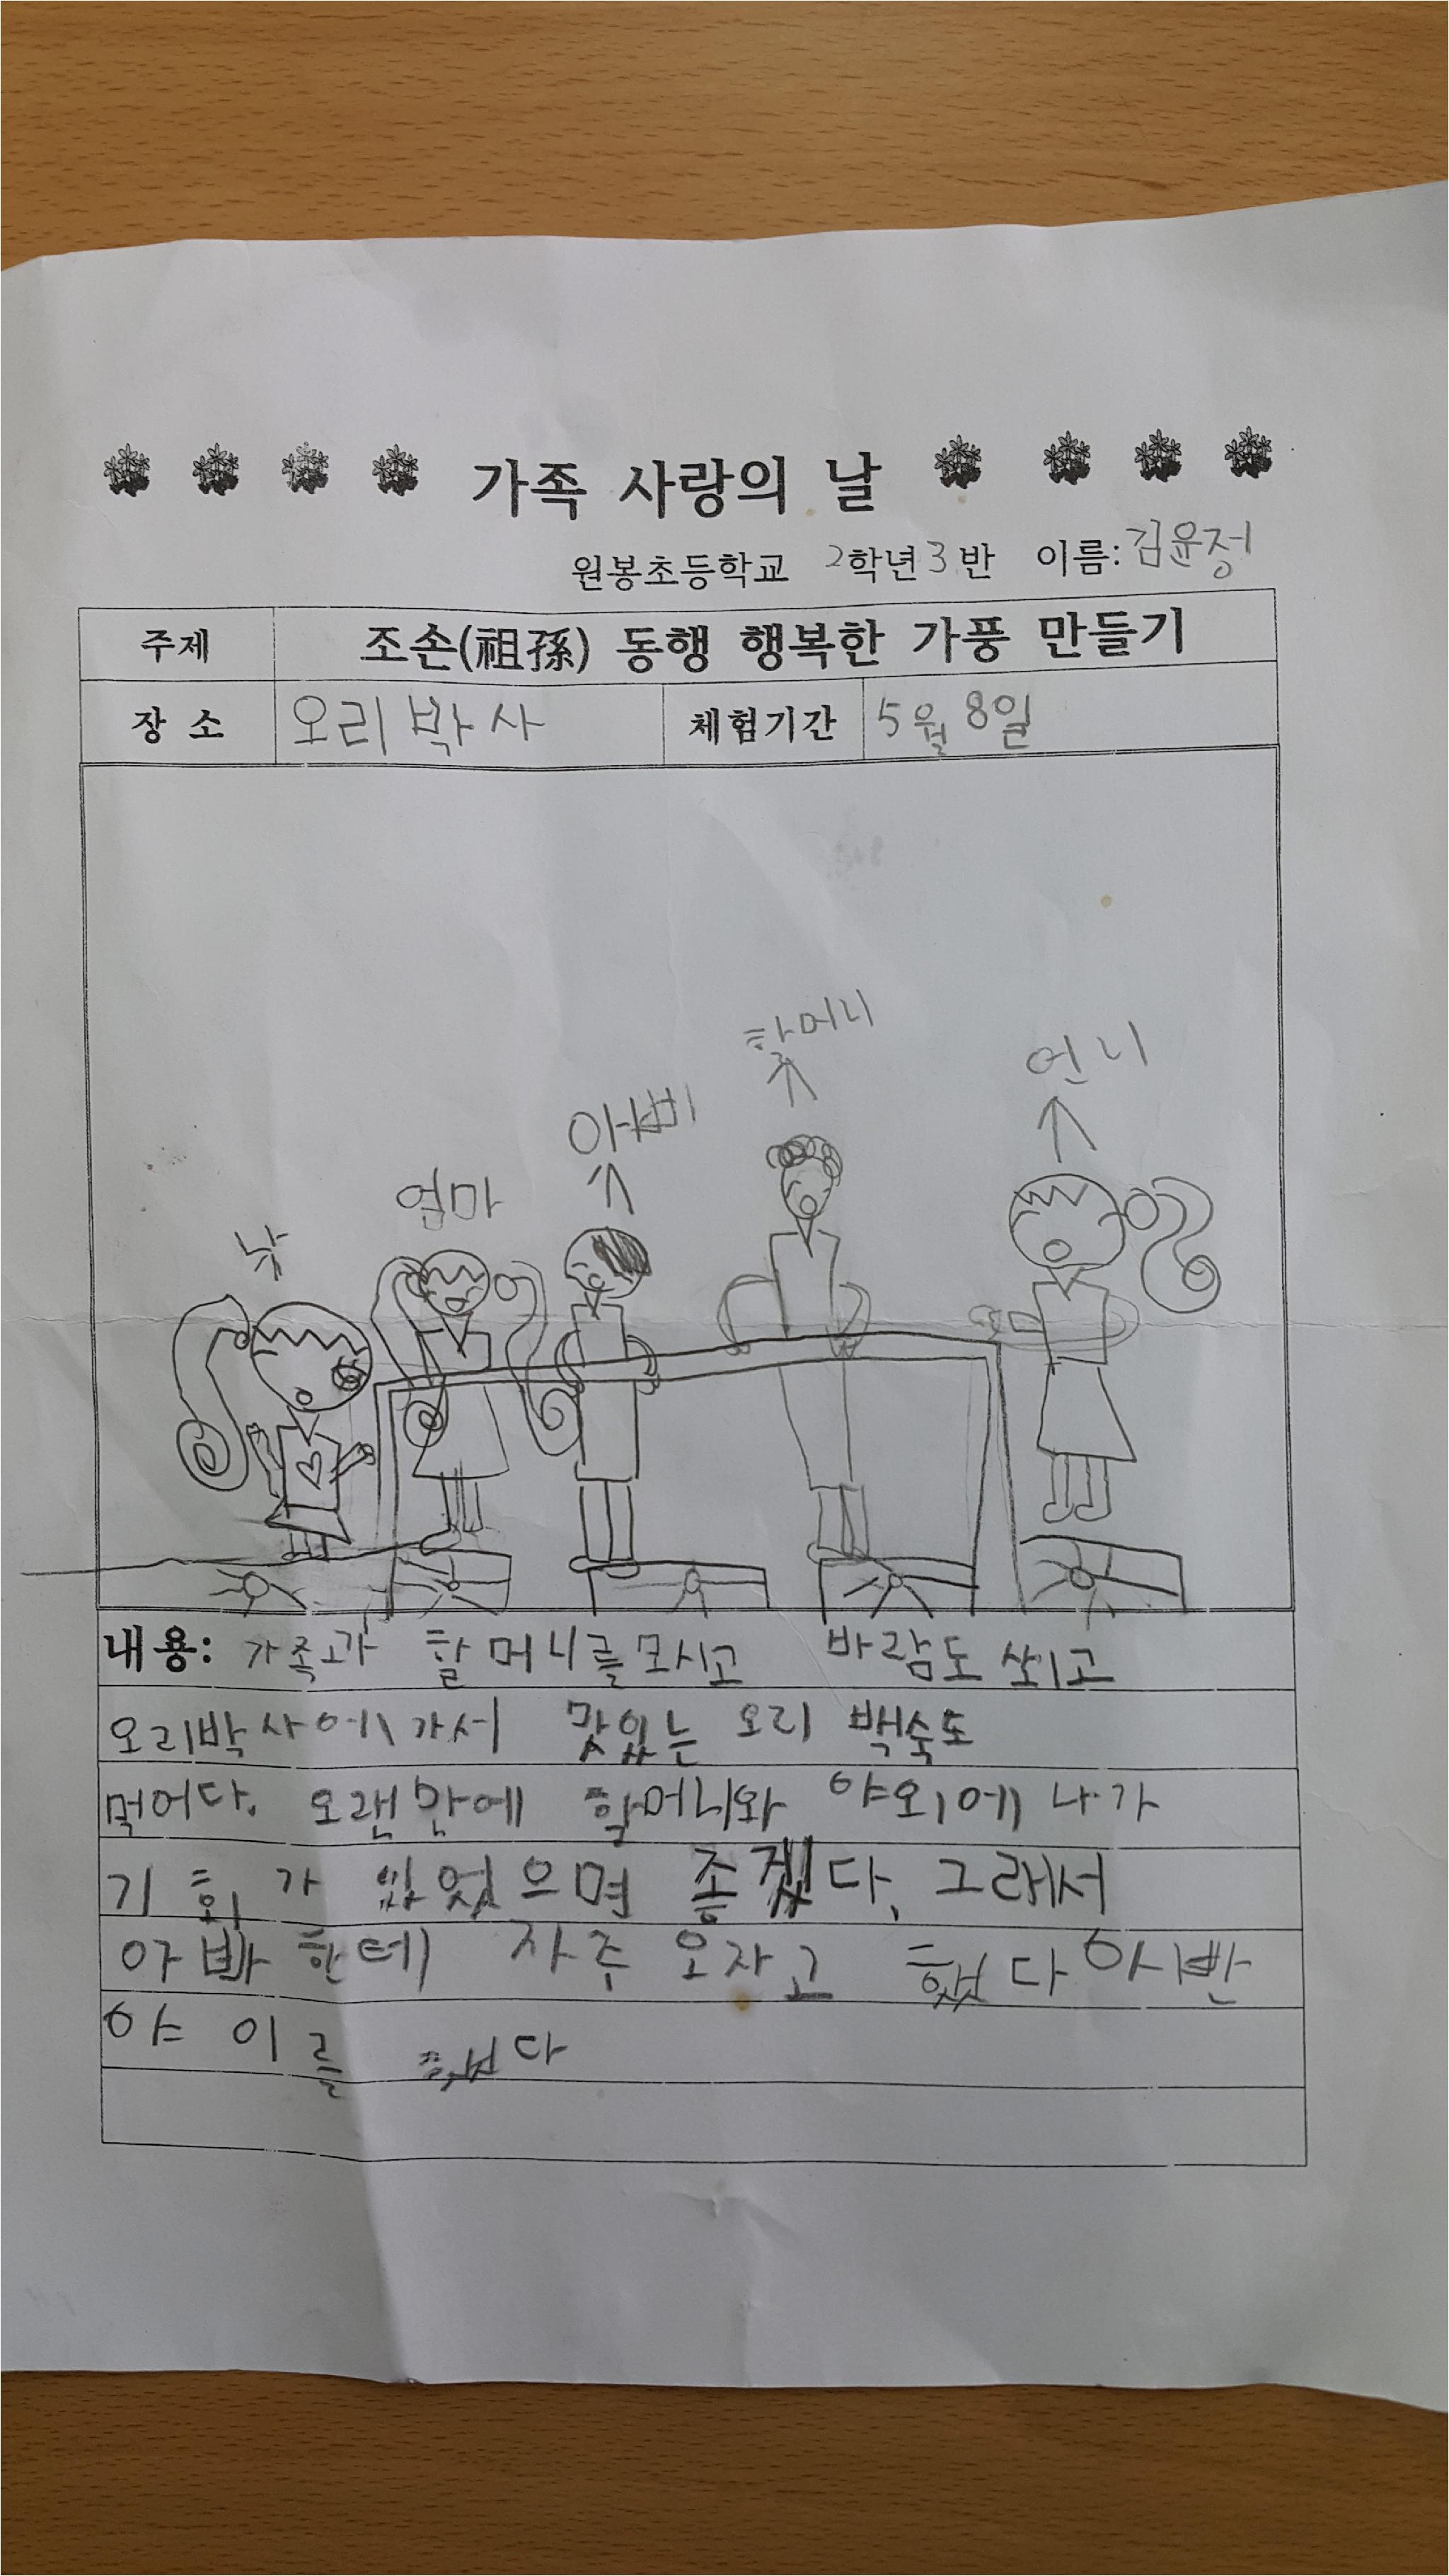 가족 사랑의 날
원봉초등학교 2학년 3반 이름: 김윤정
주제 조손(祖孫) 동행 행복한 가풍 만들기
장소 오리박사 체험기간 5월 8일
할머니
언니
아빠
엄마
나
내용: 가족과 할머니를 모시고 바람도 쐬고
오리박사에가서 맛있는 오리 백숙도
먹어다. 오랜만에 할머니와 야외에 나가
기회가 있었으면 좋겠다, 그래서
아빠한테 자주 오자고 했다
야 이를 했다